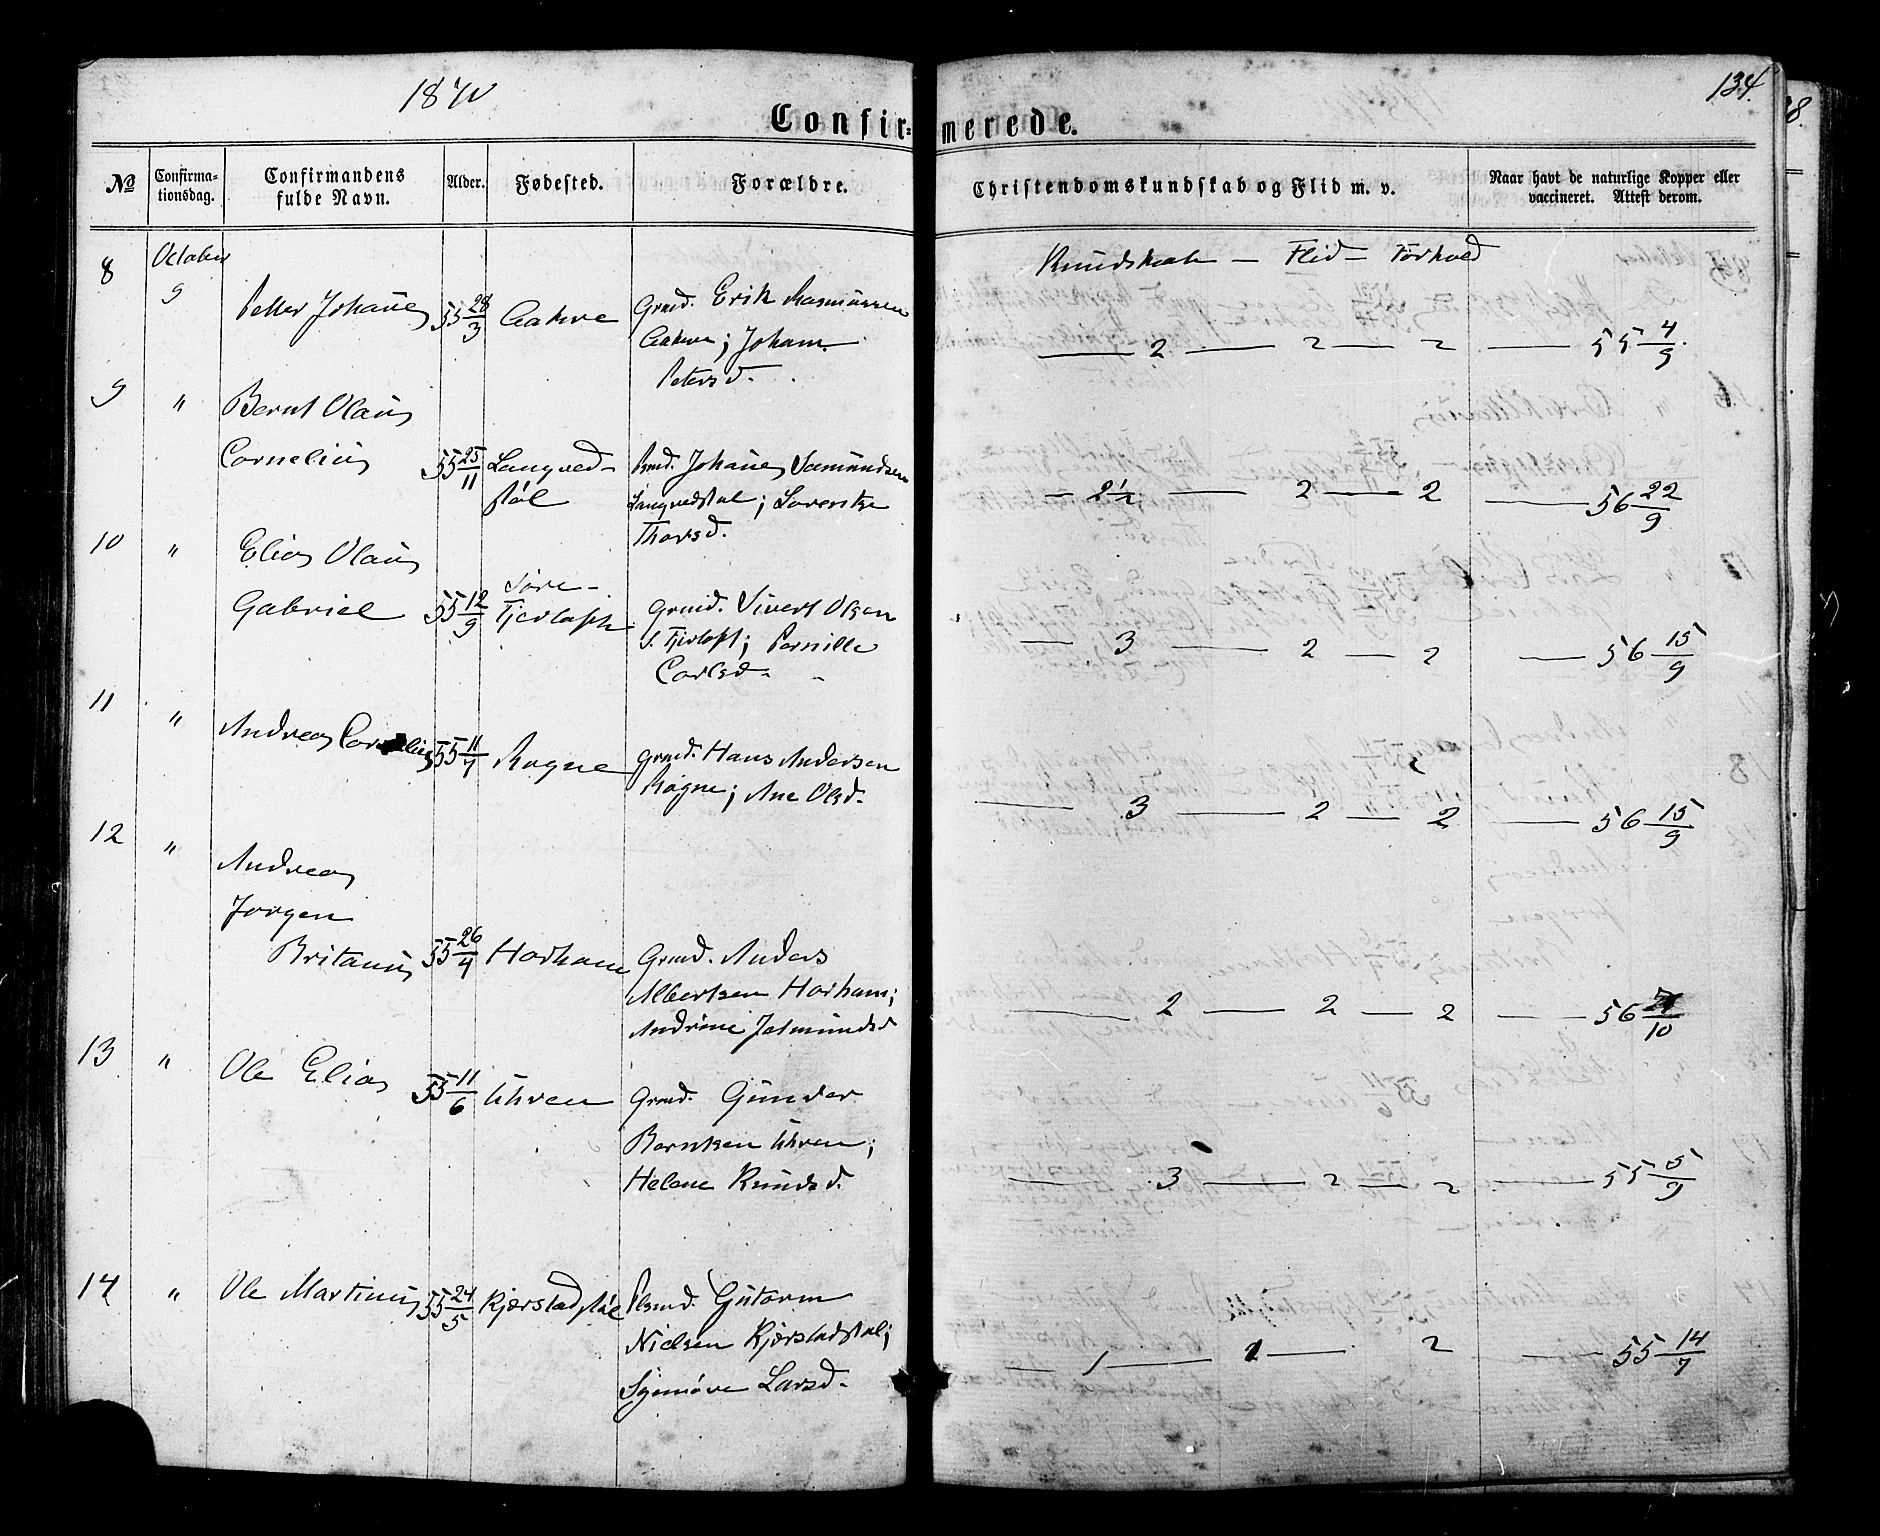 1870
134.
Confirmerede.
No
Confirmationsdag.
Confirmandens fulde Navn.
Alder.
Fødested.
Forældre.
Christendomskundskab og Flid m. v.
Naar havt de naturlige Kopper eller vaccineret. Attest derom.
Kundskab — Flid — Forhold
8 October 9 Petter Johan 55 28/3 Aakre Grmd. Erik Rasmussen
Aakre; Johan.
Petersd.
— 2 — 2 — 2 — 55 4/9.
9 " Bernt Olaus
Cornelius 55 25/11 Langved- Pmd. Johanes Samundsen
støl Langvedstøl; Laventze
Thorsd.
— 2 1/2 — 2 — 2 — 56 22/9
10 " Elias Olaus
Gabriel 55 12/9 Søre- Grmd. Sivert Olsen
Fjertoft S. Fjertoft; Pernille
Carlsd.
— 3 — 2 — 2 — 56 15/9
11 " Andreas Cornelius 55 11/7 Rogne Grmd. Hans Andersen
Rogne; Ane Olsd.
— 3 — 2 — 2 — 56 15/9
12 " Andreas
Jørgen
Britanus 55 26/4 Harham Grmd. Anders
Albertsen Harham;
Andrine Jetmundsd
— 2 — 2 — 2 — 56 /10
13 " Ole Elias 55 11/6 Uhren Grmd. Gunder
Berntsen Uhren;
Helene Knudsd.
— 3 — 2 — 2 — 55 5/9
14 " Ole Martinus 55 24/5 Kjerstadstøl Plsmd. Guttorm
Nielsen Kjerstadstøl;
Synnøve Larsd.
— 1 — 2 — 2 — 55 14/7